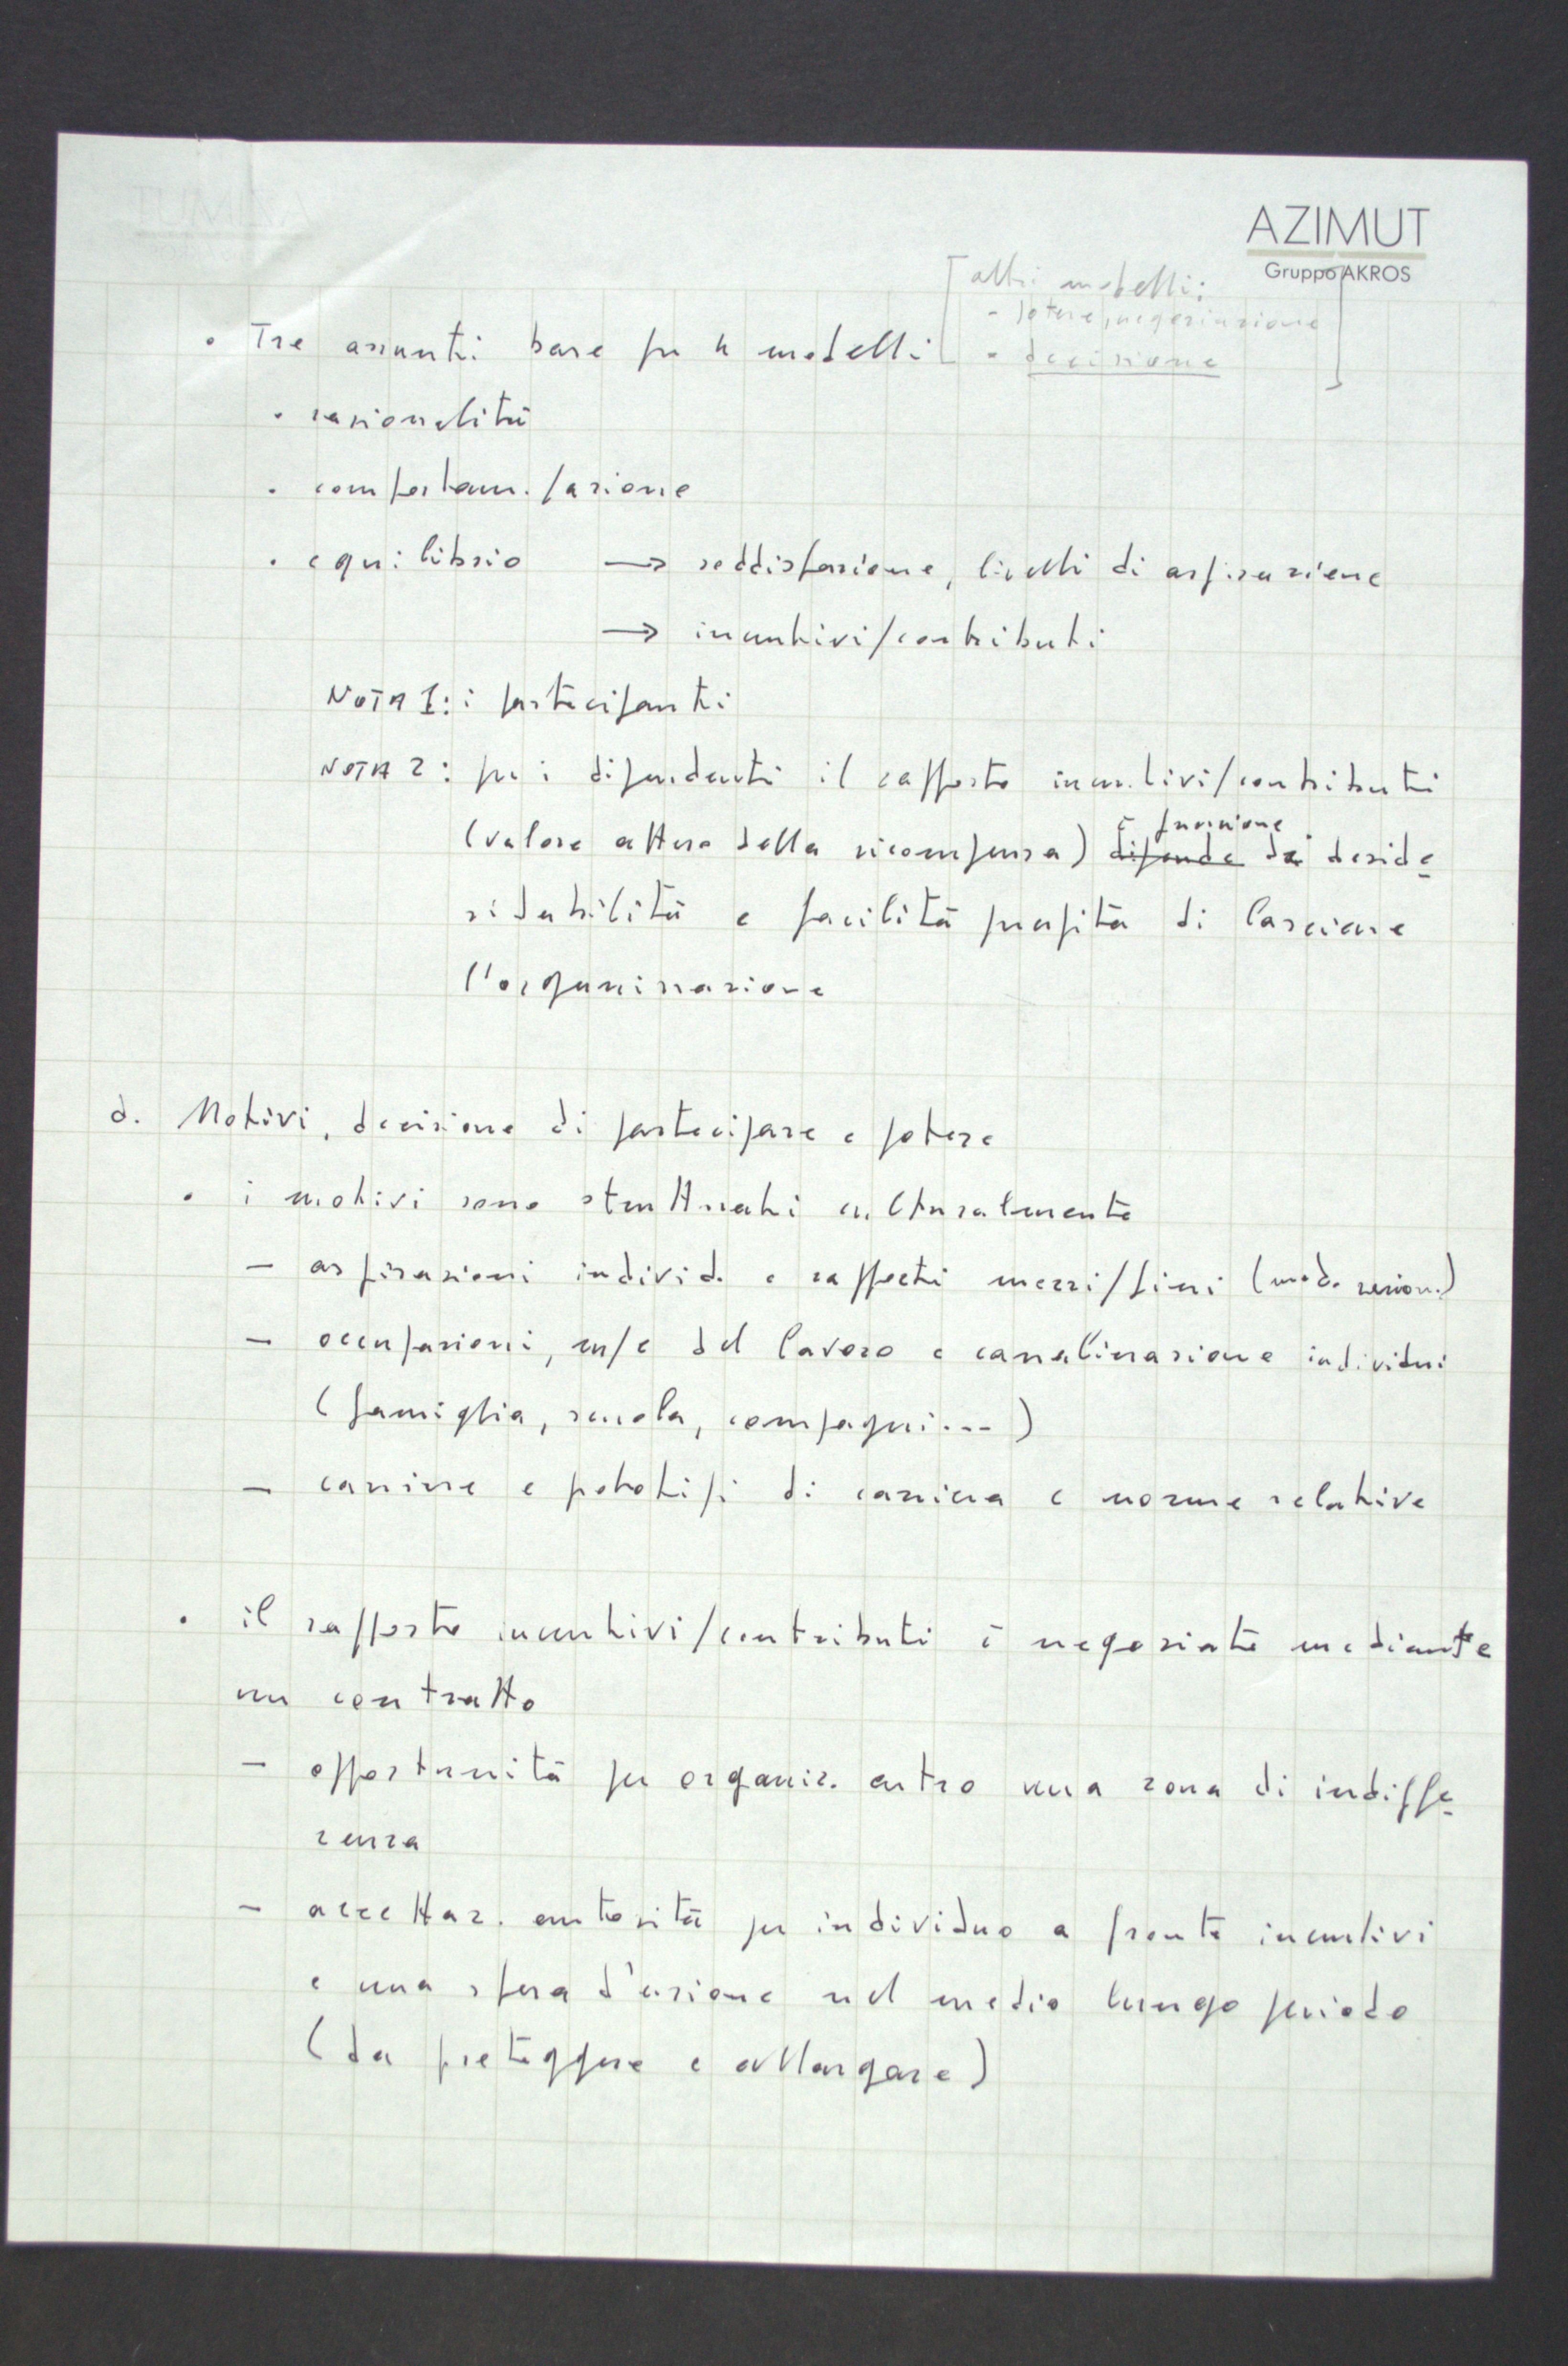 AZIMUT
Gruppo AKROS
[altri modelli:
- potere, negoziazione
- decisione]
• Tre assunti base per 4 modelli
• razionalità
• comportam./azione
• equilibrio → soddisfazione, livelli di aspirazione
→ incentivi/contributi
NOTA 1: i partecipanti
NOTA 2: per i dipendenti il rapporto incentivi/contributi
(valore atteso della ricompensa) dipende è funzione di deside-
rabilità e facilità percepita di lasciare
l'organizzazione
d. Motivi, decisione di partecipare e potere
• i motivi sono strutturati culturalmente
- aspirazioni individ. e rapporti mezzi/fini (mod. razion.)
- occupazioni, m/c del lavoro e canalizzazione individui
(famiglia, scuola, compagni...)
- carriere e prototipi di carriera e norme relative
• il rapporto incentivi/contributi è negoziato mediante
un contratto
- opportunità per organiz. entro una zona di indiffe-
renza
- accettaz. autorità per individuo a fronte incentivi
e una sfera d'azione nel medio lungo periodo
(da proteggere e allargare)